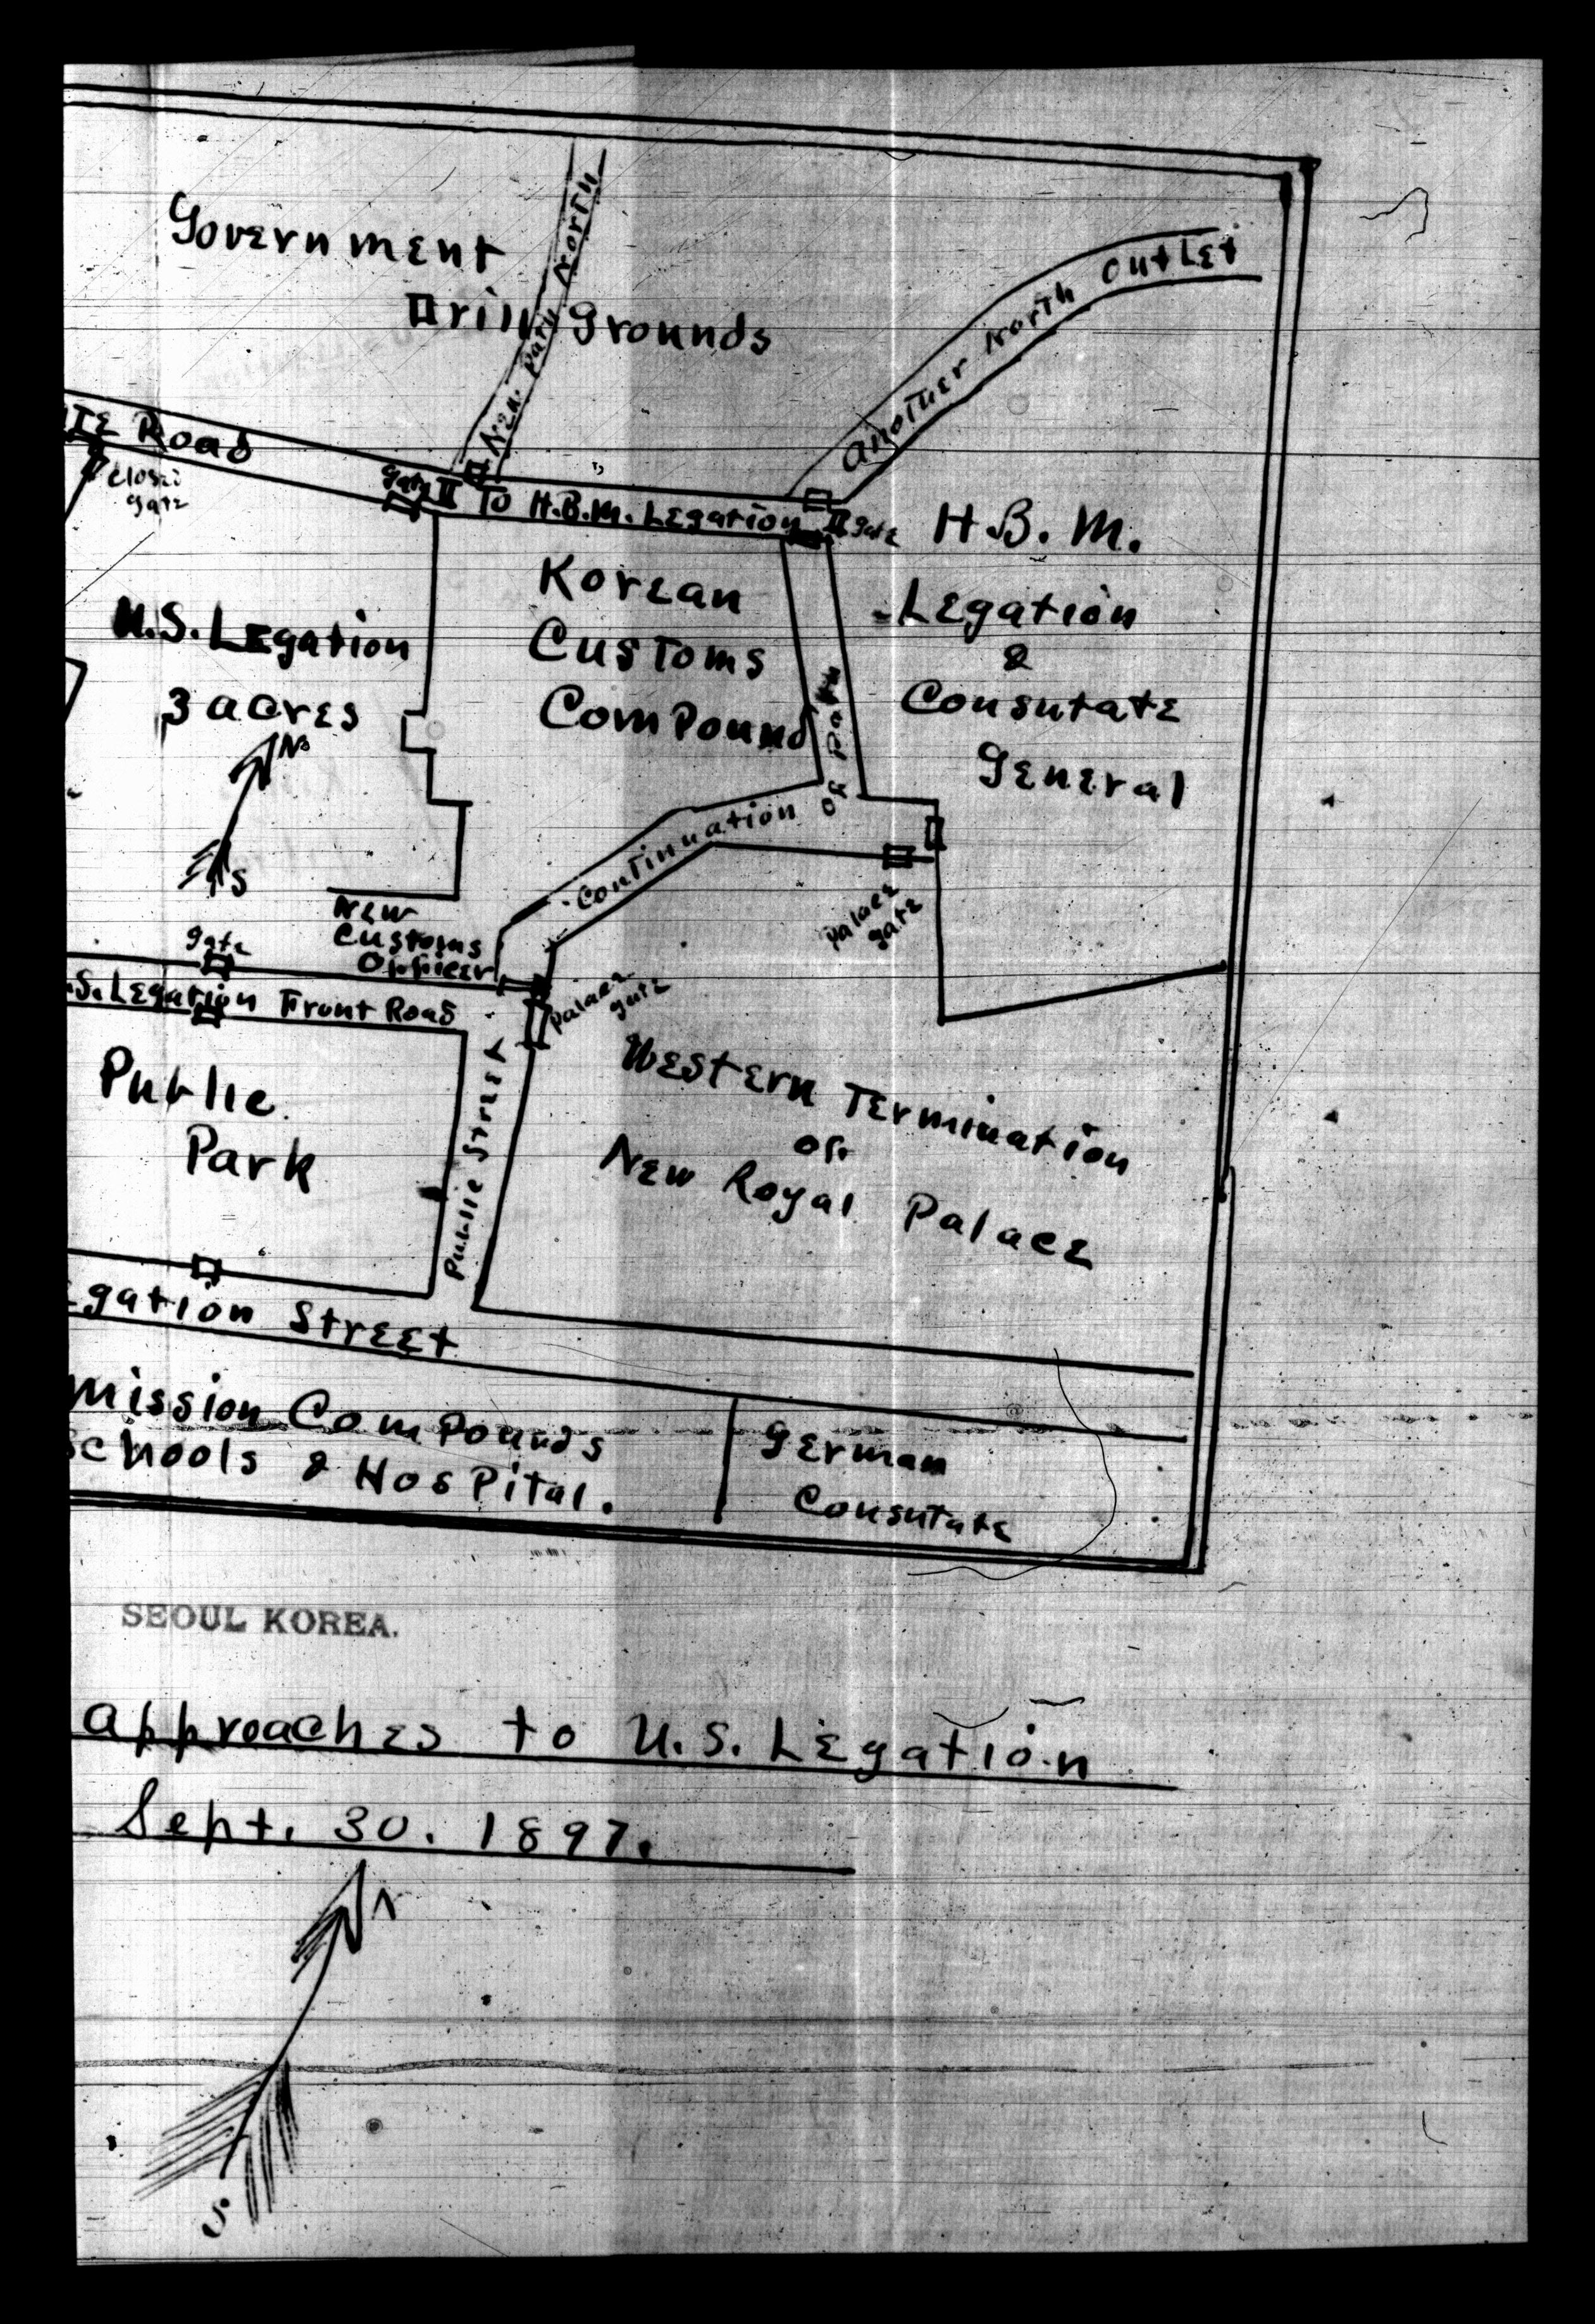 Government
Drill Grounds
New Path North
Another North Outlet
Road
Closed
gate
gate
To H.B.M. Legation
gate
H.B.M.
Legation
&
Consulate
General
Korean
Customs
Compound
U.S. Legation
3 acres
No
S
Continuation of Path
Palace
gate
New
Customs
Officer
gate
.S. Legation Front Road
Palace
gate
Public
Park
Public Street
Western Termination
of
New Royal Palace
egation Street
Mission Compounds
Schools & Hospital.
German
Consulate
SEOUL KOREA.
Approaches to U.S. Legation
Sept. 30. 1897.
N
S